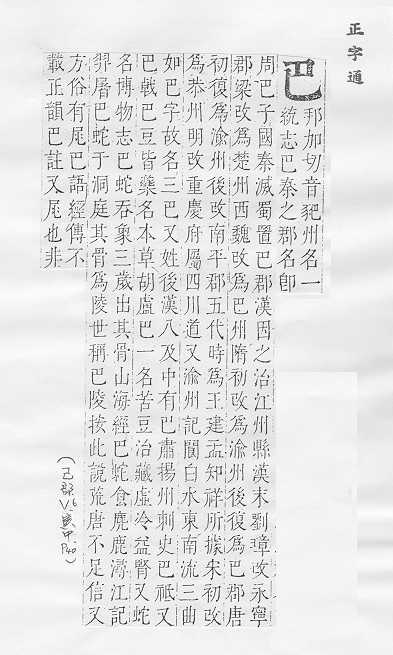 正字通
巴
邦加切音豝州名一
統志巴秦之郡名卽
周巴子國秦滅蜀置巴郡漢因之治江州縣漢末劉璋改永寧
郡梁改爲楚州西魏改爲巴州隋初改爲渝州後復爲巴郡唐
初復爲渝州後改南平郡五代時爲王建孟知祥所據宋初改
爲恭州明改重慶府屬四川道又渝州記閬白水東南流三曲
如巴字故名三巴又姓後漢八及中有巴肅揚州刺史巴祗又
巴戟巴豆皆藥名本草胡盧巴一名苦豆治藏虛冷益腎又蛇
名博物志巴蛇吞象三歲出其骨山海經巴蛇食鹿鹿潯江記
羿屠巴蛇于洞庭其骨爲陵世稱巴陵按此說荒唐不足信又
方俗有尾巴語經傳不
載正韻巴註又尾也非